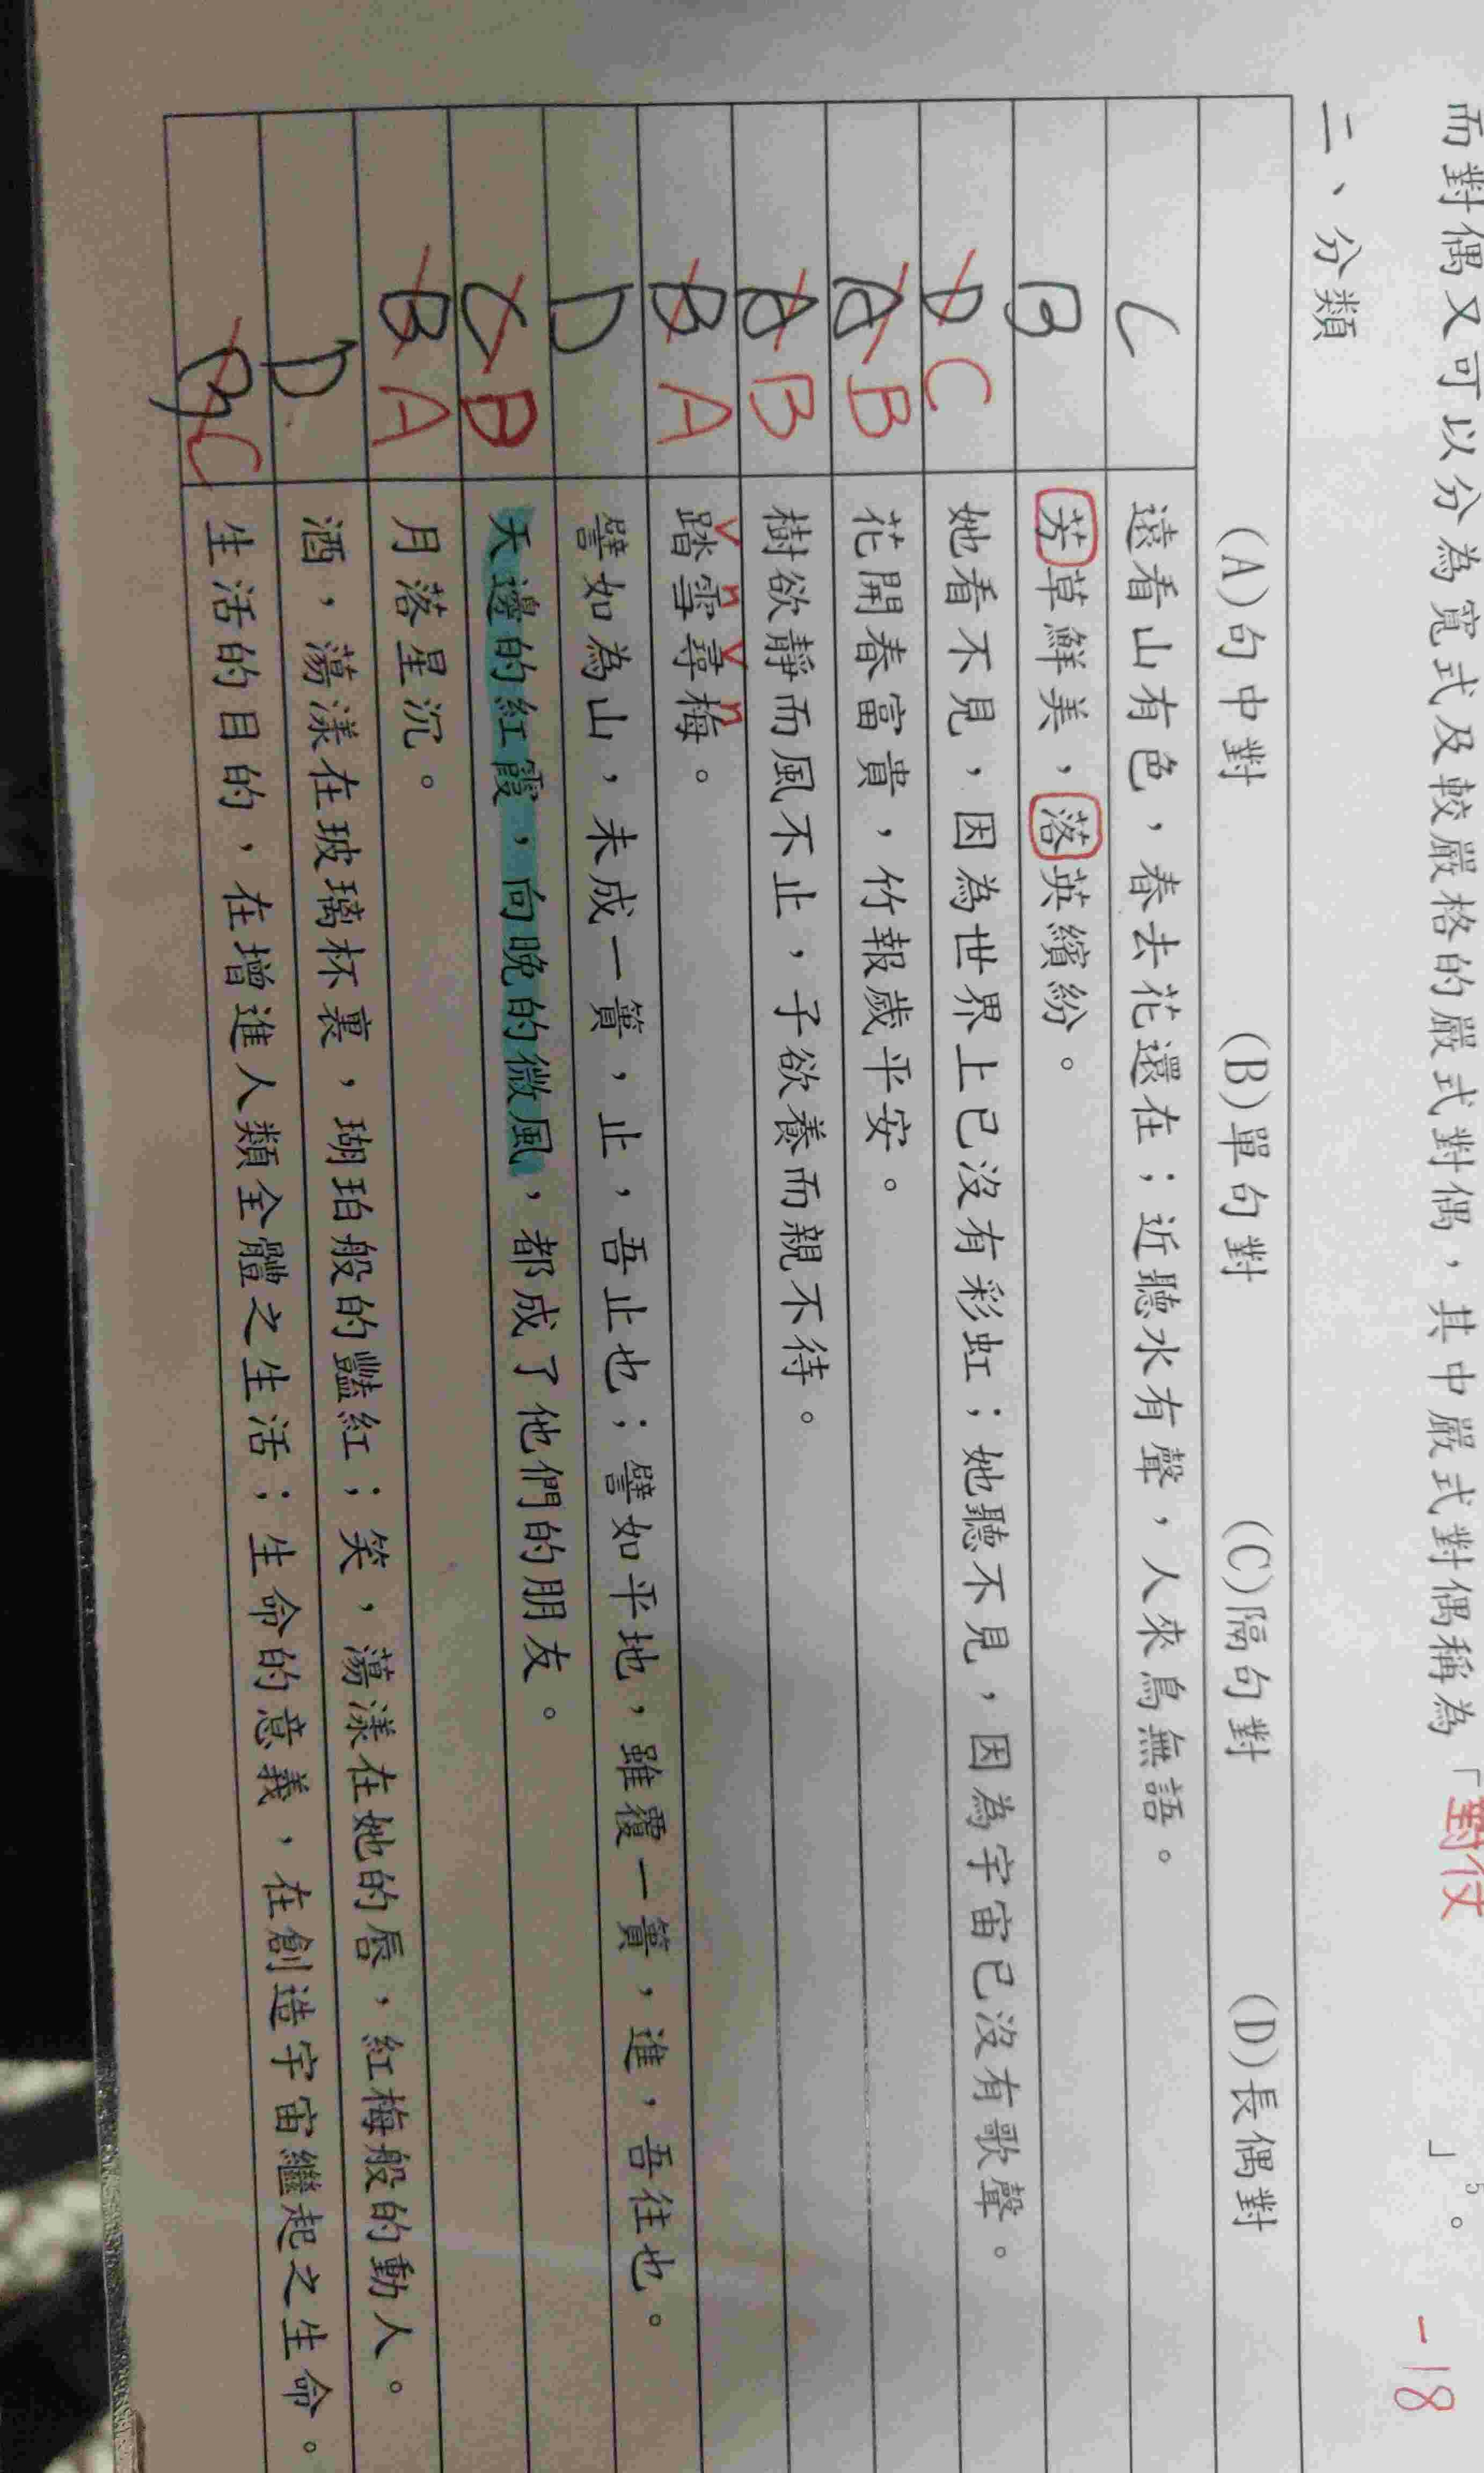 而對偶又可以分為寬式及較嚴格的嚴式對偶，其中嚴式對偶稱為「對仗」5。
-18
二、分類
(A)句中對 (B)單句對 (C)隔句對 (D)長偶對
C 遠看山有色，春去花還在；近聽水有聲，人來鳥無語。
B 芳草鮮美，落英繽紛。
D C 她看不見，因為世界上已沒有彩虹；她聽不見，因為宇宙已沒有歌聲。
B 花開春富貴，竹報歲平安。
A B 樹欲靜而風不止，子欲養而親不待。
B A 踏雪尋梅。
v n v n
D 譬如為山，未成一簣，止，吾止也；譬如平地，雖覆一簣，進，吾往也。
C B 天邊的紅霞，向晚的微風，都成了他們的朋友。
B A 月落星沉。
D 酒，蕩漾在玻璃杯裏，瑚珀般的豔紅；笑，蕩漾在她的唇，紅梅般的動人。
C 生活的目的，在增進人類全體之生活；生命的意義，在創造宇宙繼起之生命。